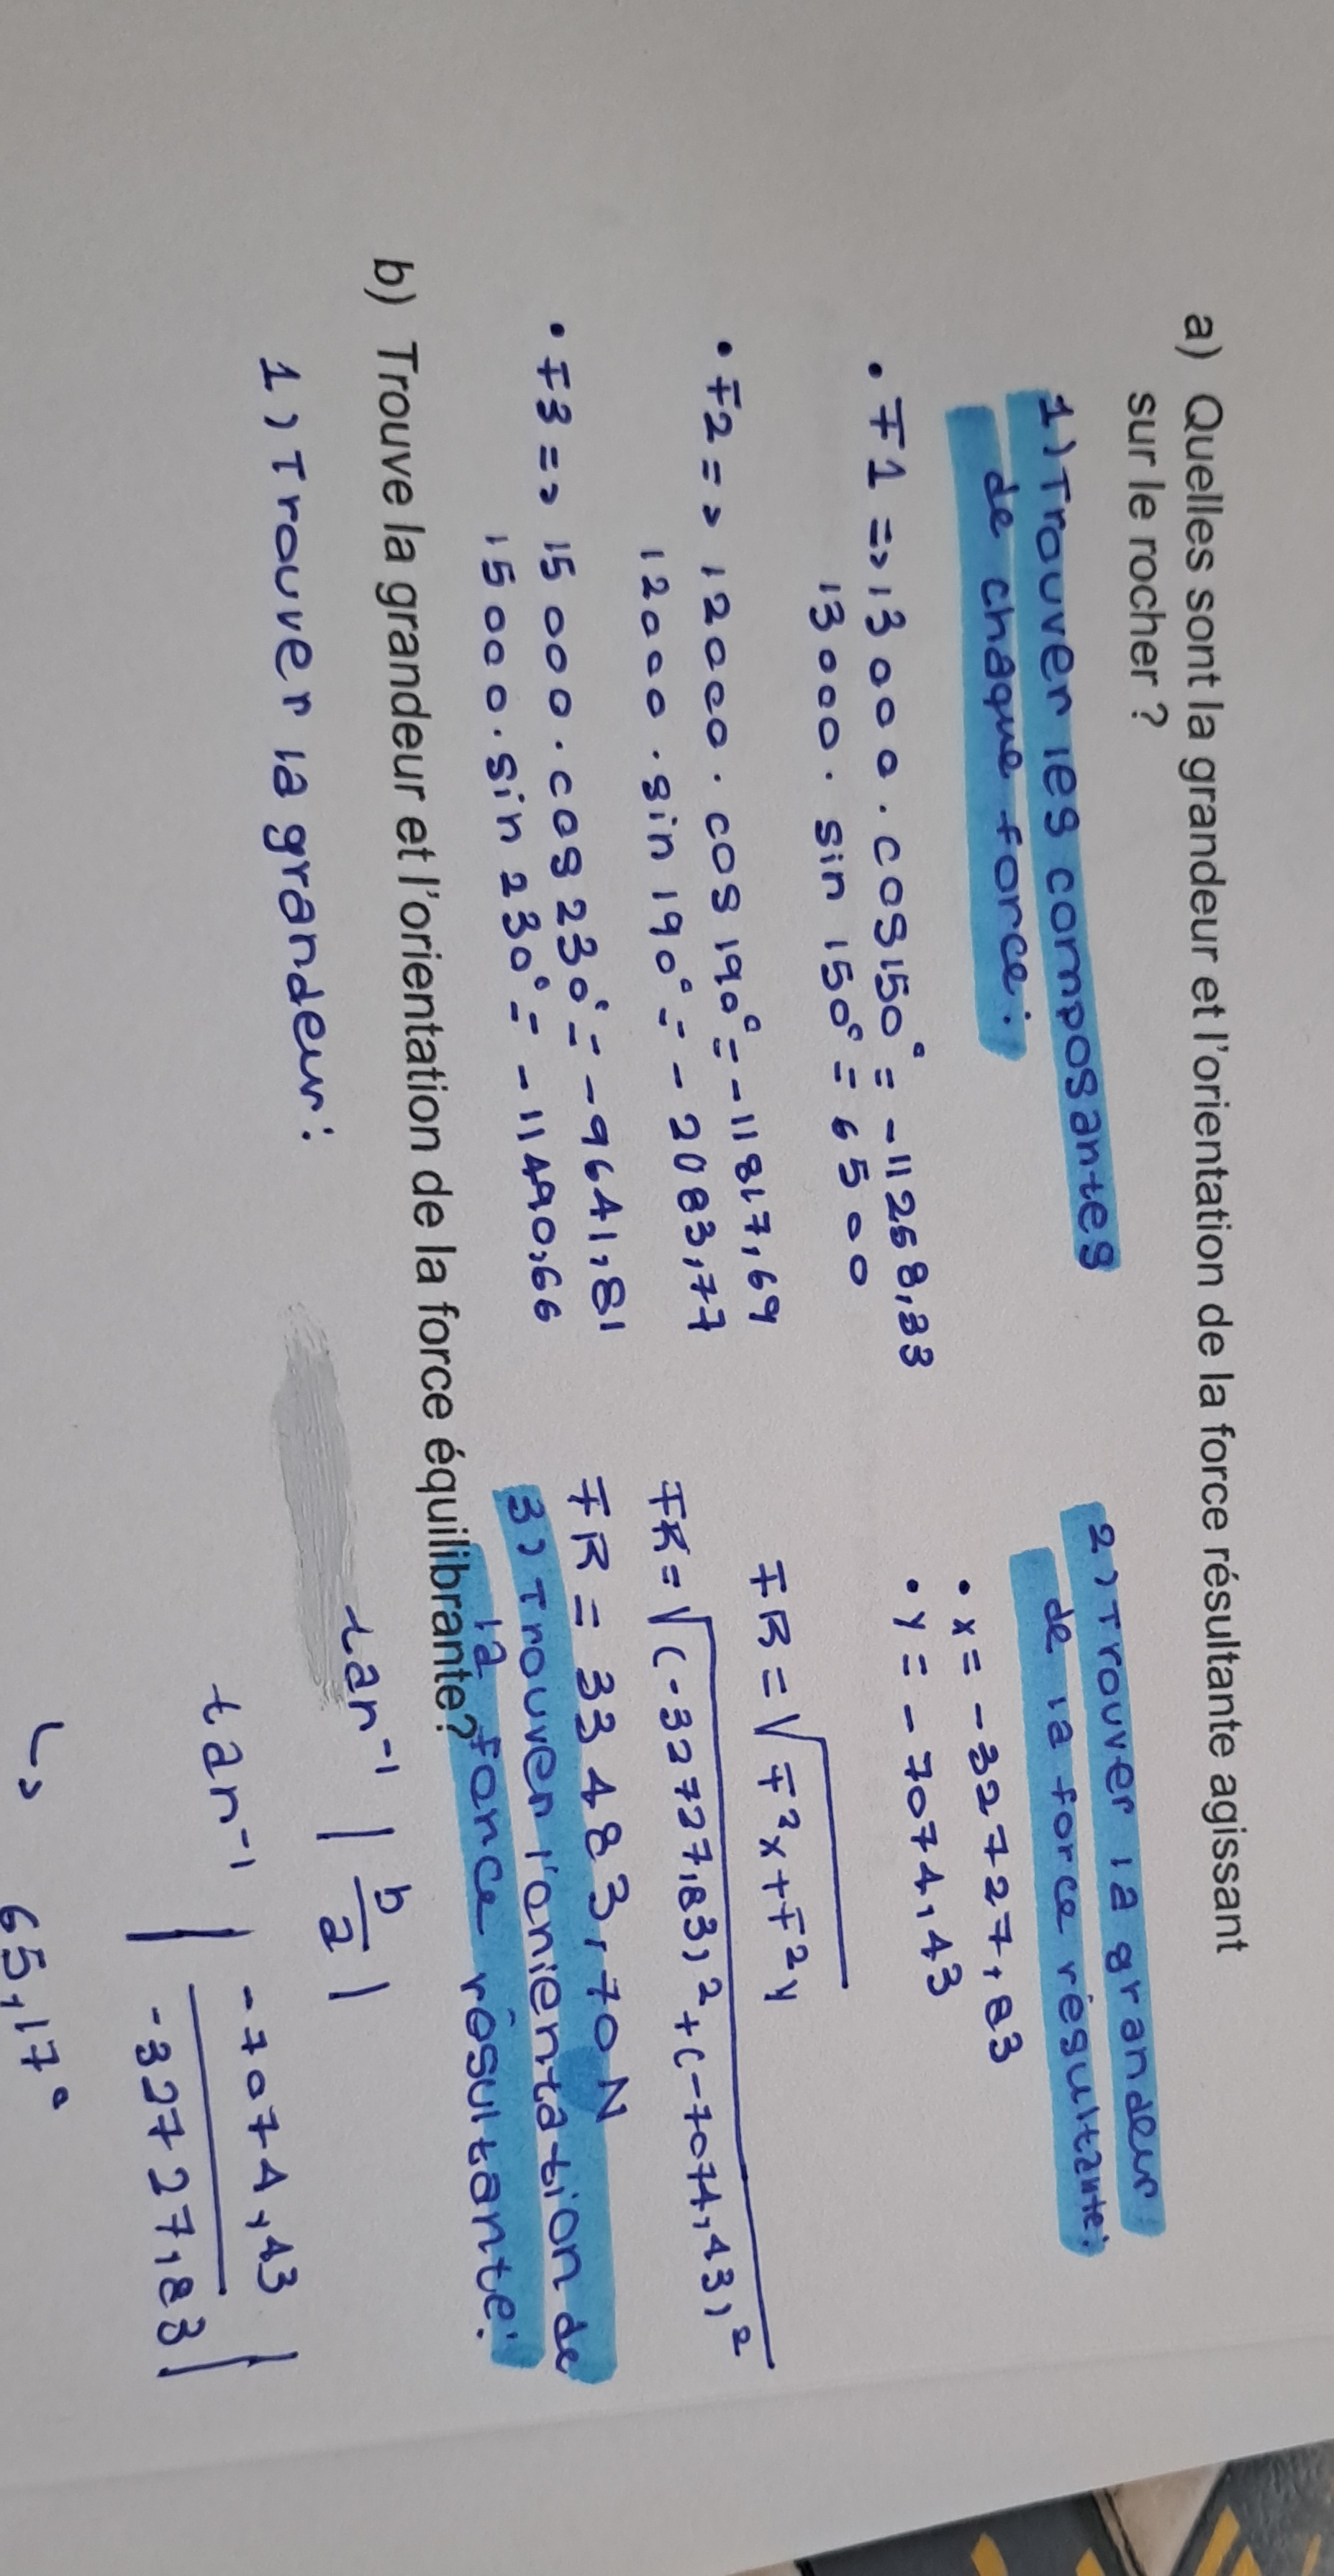 a) Quelles sont la grandeur et l'orientation de la force résultante agissant
sur le rocher ?
1) Trouver les composantes
de chaque force :
• F1 => 13000 . cos150° = -11258,33
13000 . sin 150° = 6500
• F2 => 12000 . cos 190° = -11817,69
12000 . sin 190° = -2083,77
• F3 => 15000 . cos 230° = -9641,81
15000 . sin 230° = -11490,66
2) Trouver la grandeur
de la force résultante :
• x = -32727,83
• y = -7074,43
FR = √F²x + F²y
FR = √(-32727,83)² + (-7074,43)²
FR = 33483,70 N
3) Trouver l'orientation de
la force résultante :
b) Trouve la grandeur et l'orientation de la force équilibrante?
1) Trouver la grandeur :
tan⁻¹ | b/a |
tan⁻¹ | -7074,43 / -32727,83 |
↳ 65,17°